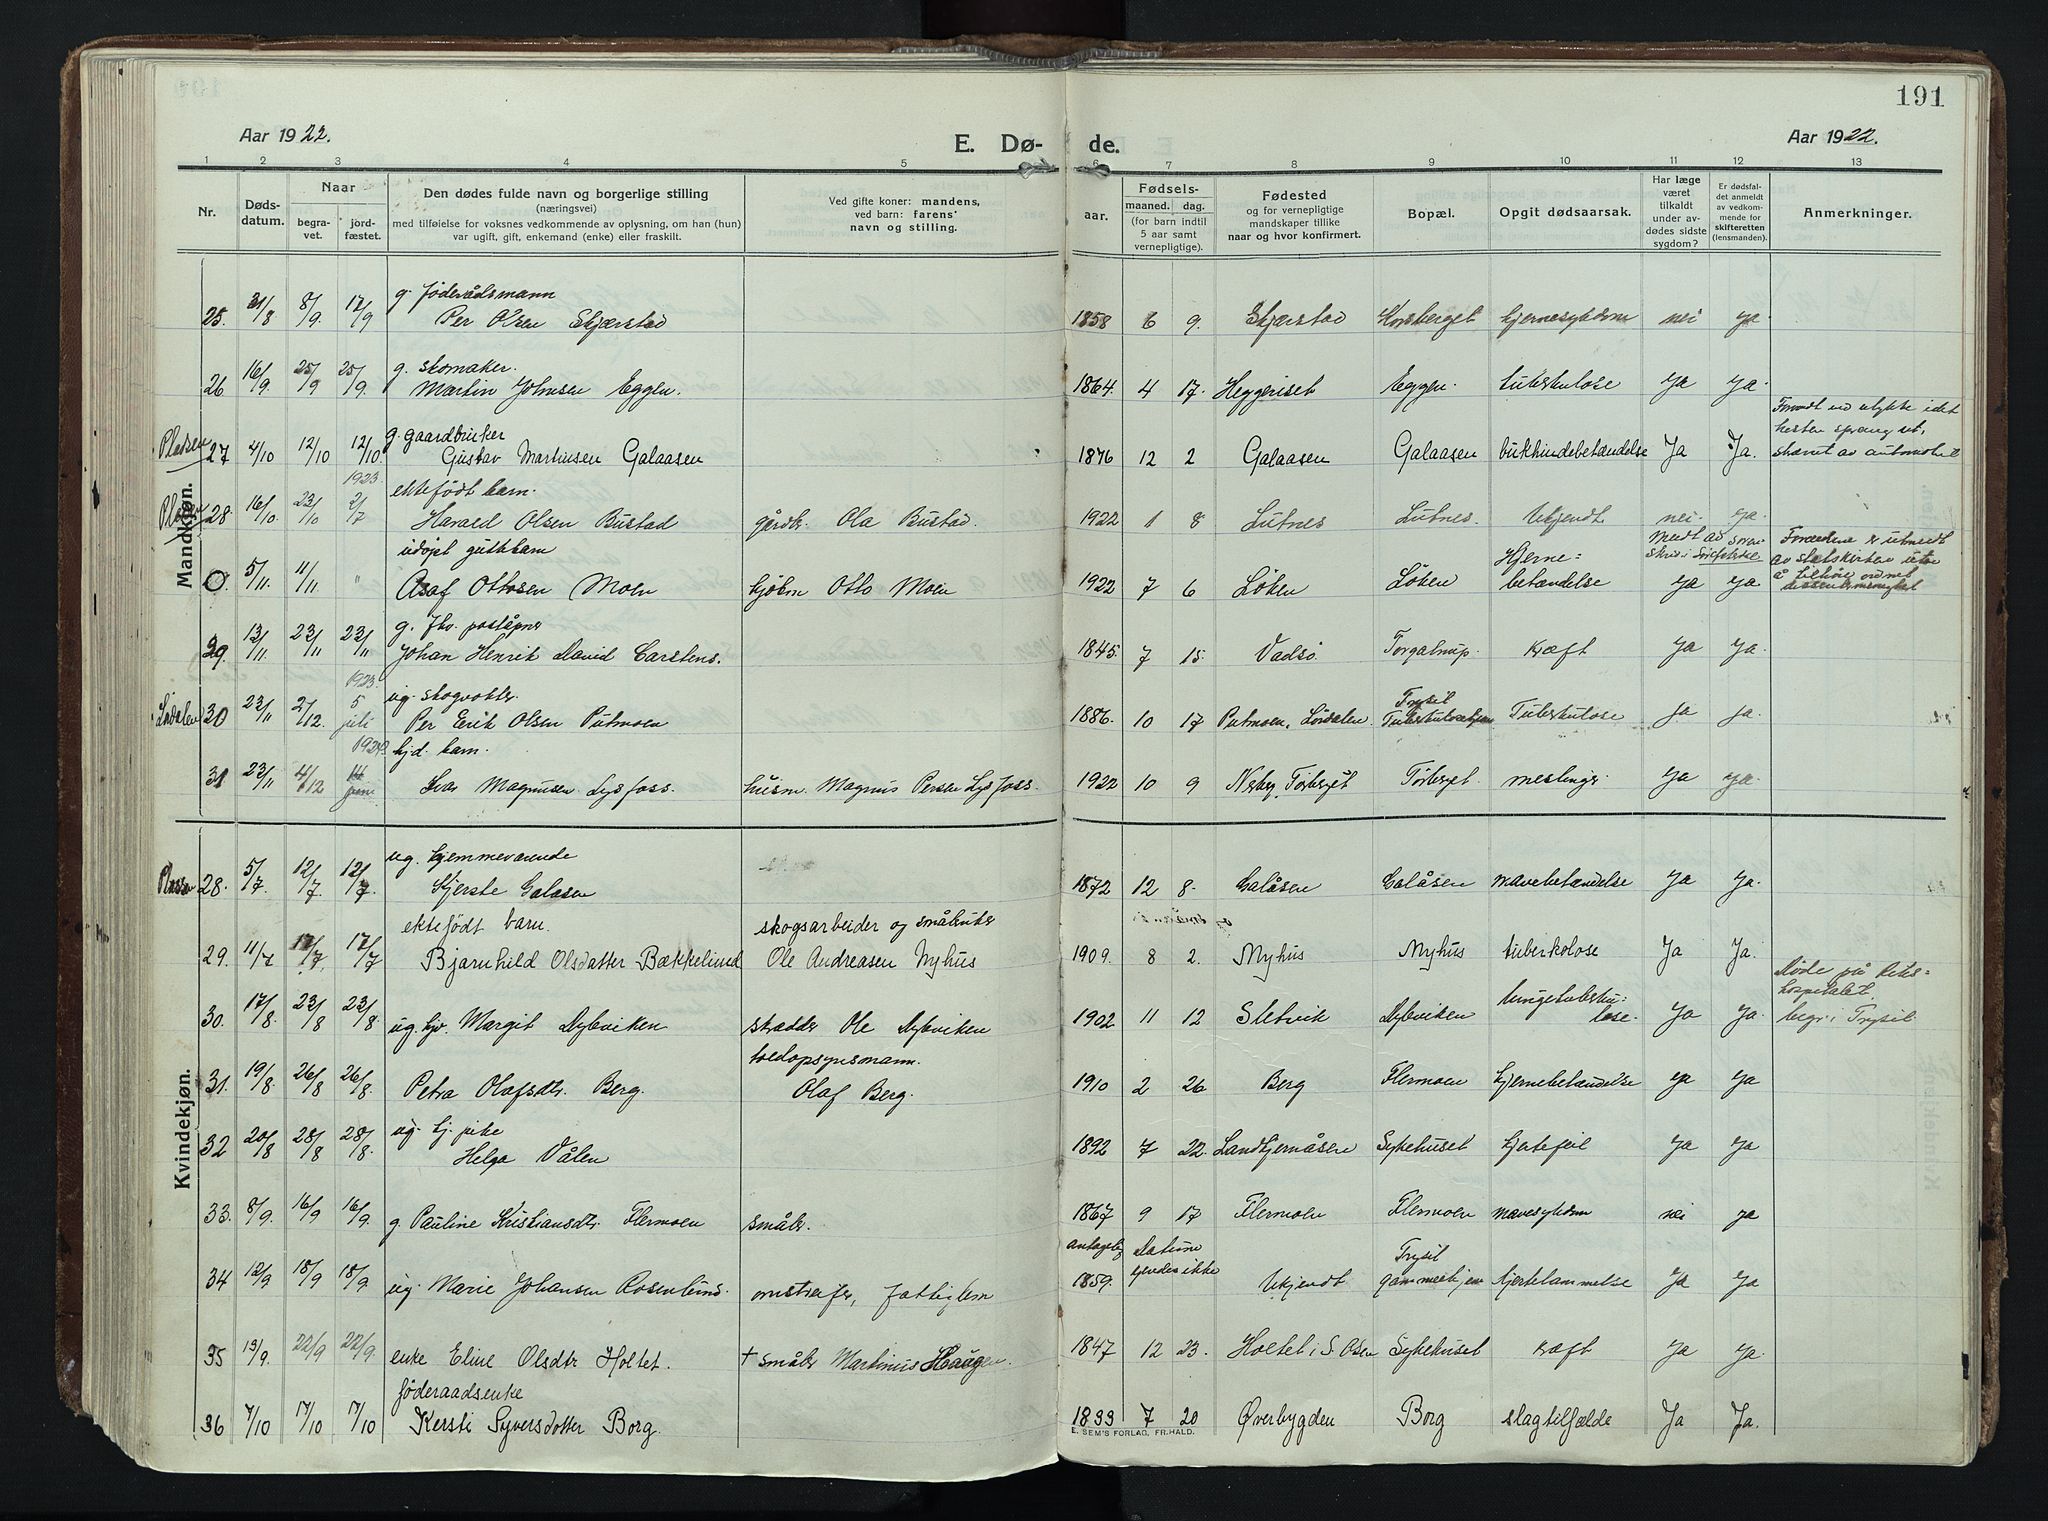 191
Aar 1922.
E. Dø- de.
Aar 1922.
1 2 3 4 5 6 7 8 9 10 11 12 13
Nr.
Døds-
datum.
Naar
begra-
vet.
jord-
fæstet.
Den dødes fulde navn og borgerlige stilling
(næringsvei)
med tilføielse for voksnes vedkommende av oplysning, om han (hun)
var ugift, gift, enkemand (enke) eller fraskilt.
Ved gifte koner: mandens,
ved barn: farens'
navn og stilling.
Fødsels-
aar. maaned. dag.
(for barn indtil
5 aar samt
vernepligtige).
Fødested
og for vernepligtige
mandskaper tillike
naar og hvor konfirmert.
Bopæl.
Opgit dødsaarsak.
Har læge
været
tilkaldt
under av-
dødes sidste
sygdom?
Er dødsfal-
det anmeldt
av vedkom-
mende for
skifteretten
(lensmanden).
Anmerkninger.
Mandkjøn.
g. føderådsmann
25. 31/8 8/9 17/9 Per Olsen Skjærstad 1858 6 9. Skjærstad Korsberget hjernesykdom nei ja
g. skomaker.
26 16/9 25/9 25/9 Martin Johnsen Eggen. 1864. 4 17. Heggeriset Eggen. tuberkulose ja ja.
g. gaardbruker
Plassen 27 4/10 12/10 12/10 Gustav Martinsen Galaasen 1876 12 2 Galaasen Galaasen bukhindebetændelse Ja Ja.
hesten sprang ut,
skræmt av automobil
1923. ektefødt barn.
Plassen 28. 16/10 23/10 2/7 Harald Olsen Bustad gårdbr. Ola Bustad. 1922 1 8 Lutnes Lutnes. Ukjendt nei ja.
udøpt guttebarn
0 5/11 11/11 " Asaf Ottosen Moen Otto Moen 1922 7 6 Løken Løken Hjerne=
betændelse ja ja
Forældrene er utmeldt
av statskirken uten
å tilhøre ordnet
dissentermenighet
g. fhv. poståpner
29. 13/11 23/11 23/11 Johan Henrik David Carstens. 1845. 7 15. Vadsø Torgalrup. kræft ja ja.
1923. ug. skogvokter.
Lørdalen 30 23/11 2/12. 5 juli Per Erik Olsen Putmoen 1886. 10 17 Putmoen, Lørdalen Trysil Tuberkulosehjem Tuberkulose ja ja.
hjd. barn.
31 23/11 4/12 14 juni Ivar Magnusen Lysfoss. husm. Magnus Persen Lysfoss. 1922 10 9 Nerby, Tørberget Tørberget. meslinger. ja ja.
Kvindekjøn.
ug. hjemmeværende
Plassen 28. 5/7. 12/7 12/7. Kjerste Galåsen 1872 12 8. Galåsen Galåsen mavebetændelse ja ja.
ektefødt barn. skogsarbeider og småbruker
29. 11/7 17/7. 17/7 Bjarnhild Olsdatter Bækkelund Ole Andreasen Nyhus 1909. 8 2. Nyhus Nyhus tuberkolose Ja Ja.
30. 17/8. 23/8 23/8. ug. hjv. Margit Dybviken skrædder Ole Dybviken 1902 11 12 Sletvik Dybviken lungetuberku=
lose. ja ja.
Døde på Riks=
hospitalet,
begr. i Trysil
toldopsynsmann.
31. 19/8. 26/8 26/8. Petra Olafsdtr. Berg. Olaf Berg. 1910 2 26 Berg Flermoen hjernebetændelse ja ja
ug. hj. pike
32 20/8 28/8 28/8. Helga Vålen 1892 7 22. Landhjernåsen Sykehuset hjertefeil ja ja
33. 8/9. 16/9 16/9. g. Pauline Kristiansdtr. Flermoen småbr. 1867 9 17 Flermoen Flermoen mavesykdom nei ja
34 12/9 18/9 18/9 ug. Marie Johansen Rosenlund. omstreifer, fattiglem antagelig 1859. Datum kjendes ikke Ukjendt Trysil gammelhjem hjertelammelse Ja Ja
35 13/9. 22/9 22/9. enke Eline Olsdtr Holtet. + småbr Martinus Haugen. 1847 12 23. Holtet i S. Osen Sykehuset kræft Ja ja.
føderaadsenke
36 7/10 17/10 17/10 Kersti Syversdotter Borg. 1833 7 20 Øverbygden Borg slagtilfælde Ja Ja.
E. SEM'S FORLAG, FR.HALD.